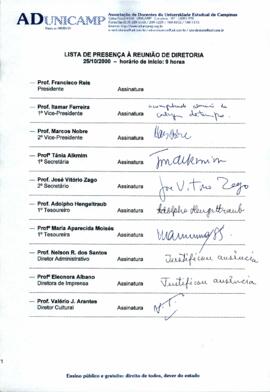 ADUNICAMP
Associação de Docentes da Universidade Estadual de Campinas
LISTA DE PRESENÇA À REUNIÃO DE DIRETORIA
25/10/2000 – horário de início: 9 horas
Prof. Francisco Reis
Presidente Assinatura
Prof. Itamar Ferreira
1º Vice-Presidente Assinatura
Prof. Marcos Nobre
2º Vice-Presidente Assinatura
Profª Tânia Alkmin
1ª Secretária Assinatura
Prof. José Vitório Zago
2º Secretário Assinatura José V. Zago
Prof. Adolpho Hengeltraub
1º Tesoureiro Assinatura Adolpho Hengeltraub
Profª Maria Aparecida Moisés
Assinatura
Prof. Nelson R. dos Santos
Diretor Administrativo Assinatura Justificou ausência
Profª Eleonora Albano
Diretora de Imprensa Assinatura Justificou ausência.
Prof. Valério J. Arantes
Diretor Cultural Assinatura
Ensino público e gratuito: direito de todos, dever do estado